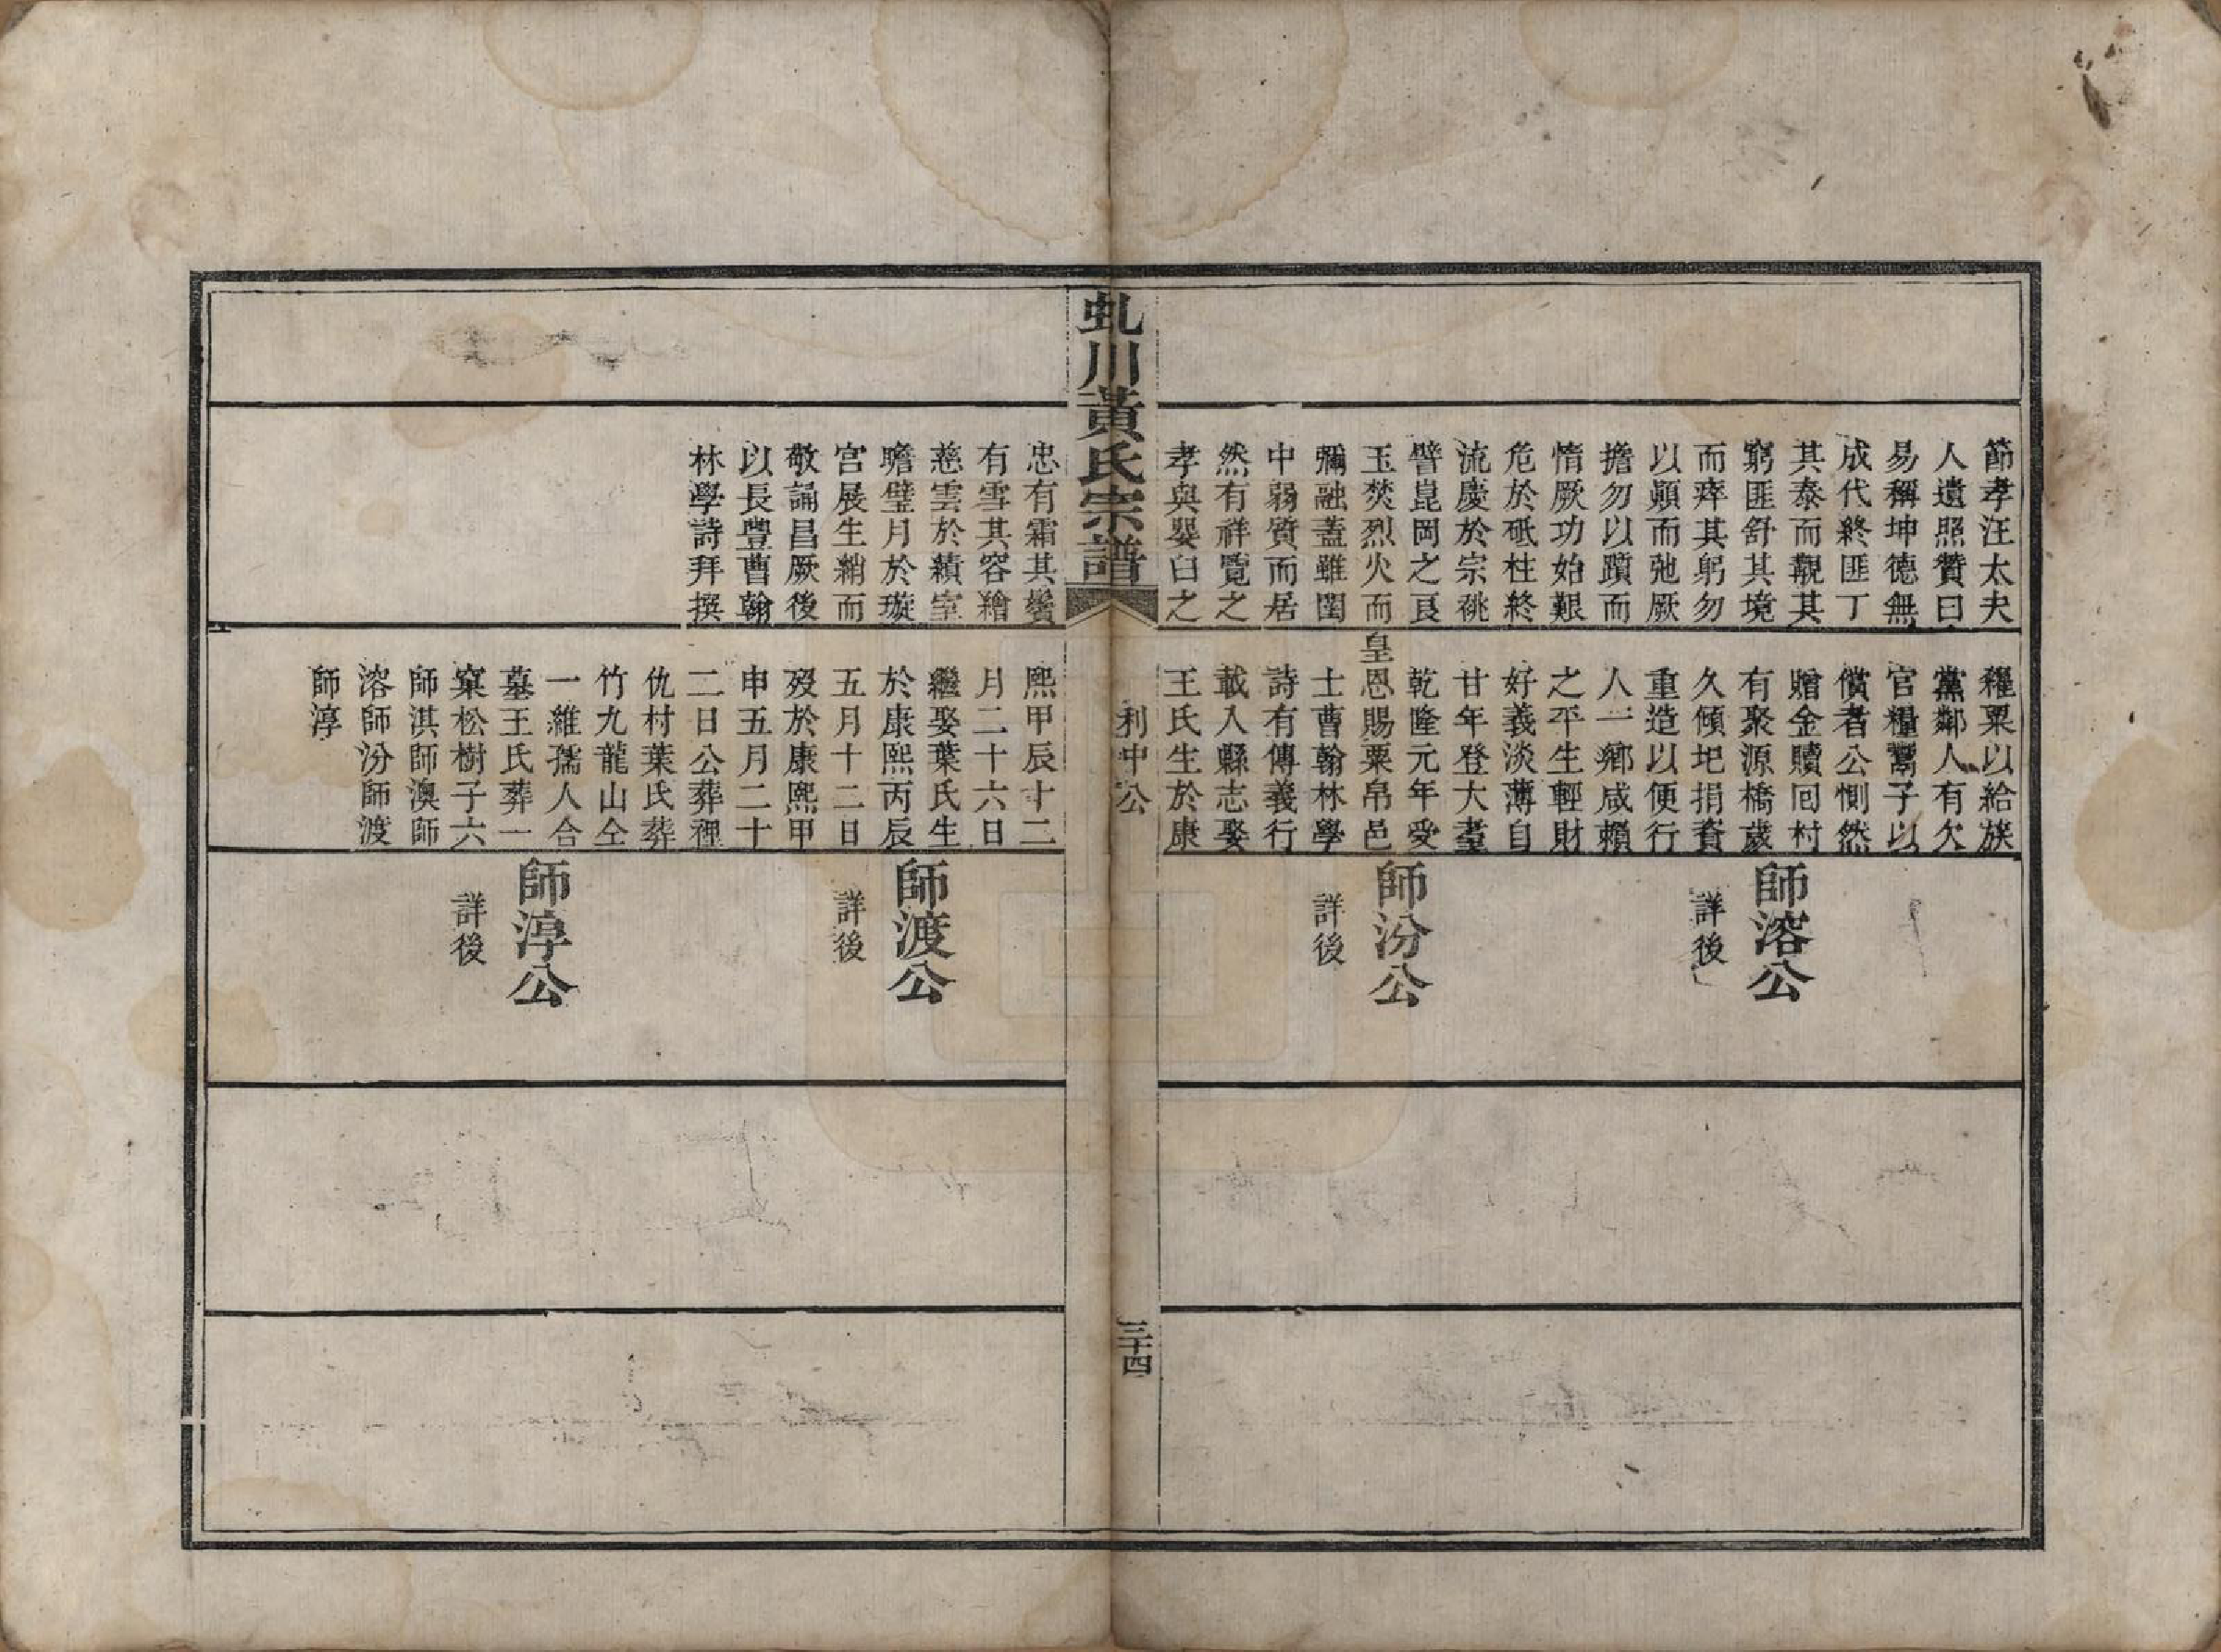 節孝汪太夫
人遺照贊曰
易稱坤德無
成代終匪丁
其泰而觀其
窮匪舒其境
而瘁其躬勿
以顛而弛厥
擔勿以躓而
惰厥功始艱
危於砥柱終
流慶於宗祧
譬崑岡之艮
玉焚烈火而
彌融蓋雖閨
中弱質而居
然有祥覽之
孝與嬰臼之
糴粟以給族
黨鄰人有欠
官糧鬻子以
償者公惻然
贈金贖囘村
有聚源橋歲
久傾圯捐資
重造以便行
人一鄉咸賴
之平生輕財
好義淡薄自
甘年登大耋
乾隆元年受
皇恩賜粟帛邑
士曹翰林學
詩有傳義行
載入縣志娶
王氏生於康
師溶公
詳後
師汾公
詳後
虬川黃氏宗譜
利中公
三十四
忠有霜其鬢
有雪其容繪
慈雲於績室
瞻璧月於璇
宮展生綃而
敬誦昌厥後
以長豐曹翰
林學詩拜撰
熙甲辰十二
月二十六日
繼娶葉氏生
於康熙丙辰
五月十二日
歿於康熙甲
申五月二十
二日公葬裡
仇村葉氏葬
竹九龍山仝
一維孺人合
墓王氏葬一
窠松樹子六
師淇師澳師
溶師汾師渡
師淳
師渡公
詳後
師淳公
詳後